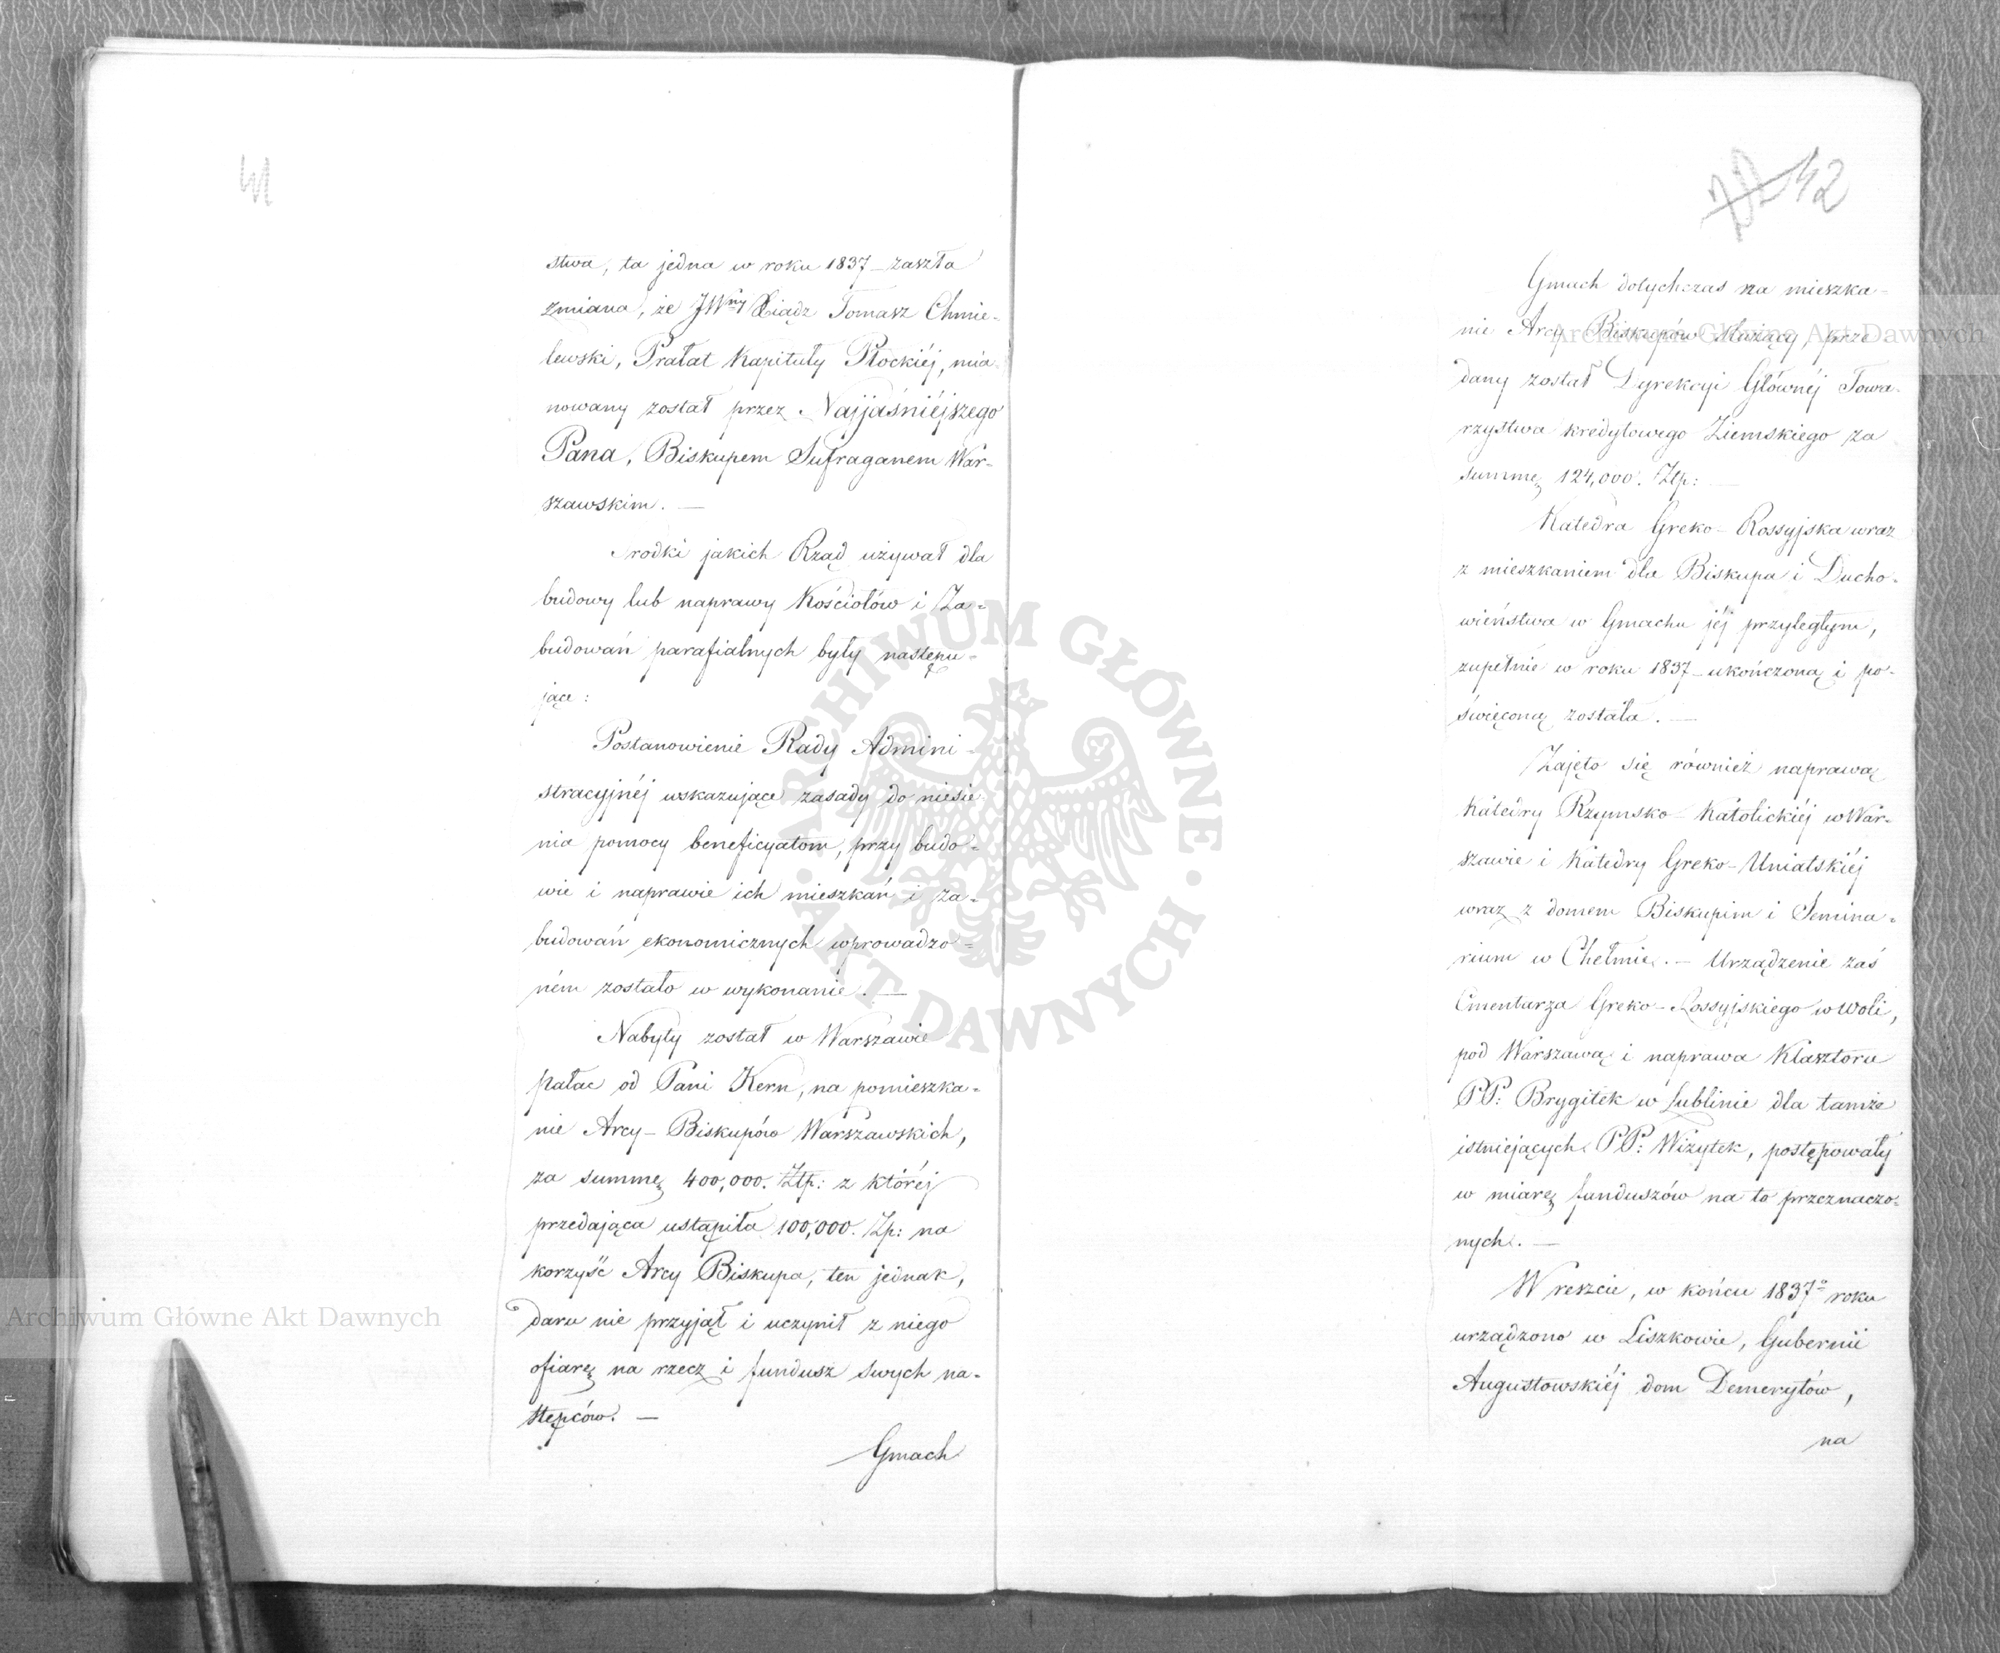 41
stwa, ta jedna w roku 1837 zaszła
zmiana, że JWny Xiądz Tomasz Chmie-
lewski, Prałat Kapituły Płockiéj, mia-
nowany został przez Najjaśniéjszego
Pana, Biskupem Sufraganem War-
szawskim. —
Srodki jakich Rząd używał dla
budowy lub naprawy Kościołów i Za-
budowań parafialnych były następu-
jące:
Postanowienie Rady Admini-
stracyjnéj wskazujące zasady do niesie
nia pomocy beneficyatom, przy budo-
wie i naprawie ich mieszkań i za-
budowań ekonomicznych wprowadzo-
ném zostało w wykonanie. —
Nabyty został w Warszawie
pałac od Pani Kern, na pomieszka-
nie Arcy-Biskupów Warszawskich,
za summę 400,000. Złp: z któréj
przedająca ustąpiła 100,000. Zp: na
korzyść Arcy Biskupa, ten jednak,
daru nie przyjął i uczynił z niego
ofiarę na rzecz i fundusz swych na-
stępców. —
Gmach
42
Gmach dotychczas na mieszka-
nie Arcy Biskupów służący, prze
dany został Dyrekcyi Głównéj Towa-
rzystwa kredytowego Ziemskiego za
summę 124,000. Złp: —
Katedra Greko-Rossyjska wraz
z mieszkaniem dla Biskupa i Ducho-
wieństwa w Gmachu jéj przyległym,
zupełnie w roku 1837 ukończoną i po-
święconą została. —
Zajęto się również naprawą
Katedry Rzymsko-Katolickiéj w War-
szawie i Katedry Greko-Uniatskiéj
wraz z domem Biskupim i Semina-
rium w Chełmie. — Urządzenie zaś
Cmentarza Greko-Rossyjskiego w Woli,
pod Warszawą i naprawa Klasztoru
PP: Brygitek w Lublinie dla tamże
istniejących PP: Wizytek, postępowały
w miarę funduszów na to przeznaczo-
nych. —
Wreszcie, w końcu 1837o roku
urządzono w Liszkowie, Gubernii
Augustowskiéj dom Demerytów,
na
ARCHIWUM GŁÓWNE · AKT DAWNYCH ·
Archiwum Główne Akt Dawnych
Archiwum Główne Akt Dawnych